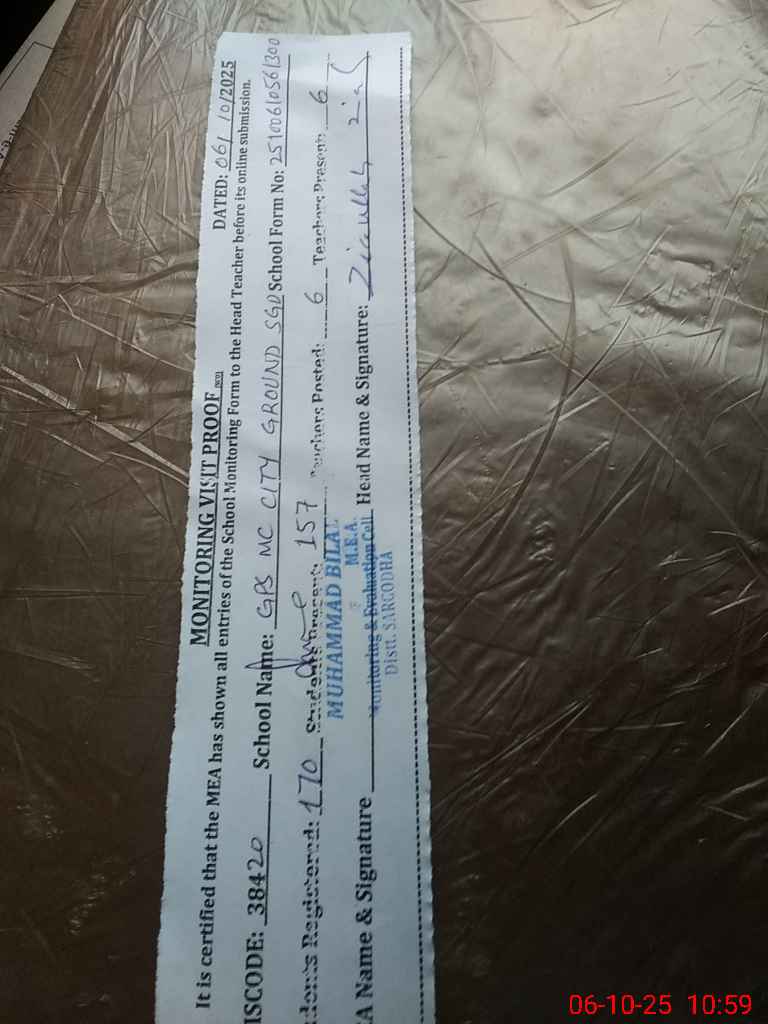 MONITORING VISIT PROOF
DATED: 06/10/2025
It is certified that the MEA has shown all entries of the School Monitoring Form to the Head Teacher before its online submission.
ISCODE: 38420 School Name: GPS MC CITY GROUND SGD School Form No: 25100610561300
dents Registered: 170 Students Present: 157 Teachers Posted: 6 Teachers Present: 6
MUHAMMAD BILAL
M.E.A.
Monitoring & Evaluation Cell
Distt. SARGODHA
EA Name & Signature Head Name & Signature: Ziaullah
06-10-25 10:59